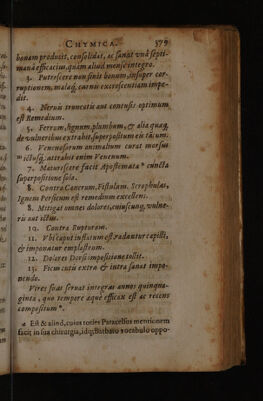 CHYMICA. 379
bonam producit, consolidat, ac sanat unâ septi-
manâ efficacius, quàm aliud mense integro.
3. Putrescere non sinit bonum, insuper cor-
ruptionem, malaq́; carnis excrescentiam impe-
dit.
4. Nervis truncatis aut contusis optimum
est Remedium.
5. Ferrum, lignum, plumbum, & alia quæq́,
de vulneribus extrahit, superpositum eis
6. Venenosorum animalium curat morsus
ictusq́, attrahit enim Venenum.
7. Maturescere facit Apostemata cuncta
superpositione sola.
8. Contra Cancrum, Fistulam, Scrophulas,
Ignem Persicum est remedium excellens.
9. Mitigat omnes dolores, cuiuscunq, vulne-
ris aut ictus.
10. Contra Rupturam.
11. Vbi caput infectum est radantur capilli,
& imponatur emplastrum.
12. Dolores Dorsi impositione tollit.
13. Ficum cutis extra & intra sanat impo-
nendo.
Vires suas servat integras annos quinqua-
ginta, quo tempore æquè efficax est ac recens
compositum.
Est & aliud, cuius toties Paracelsus mentionem
facit in sua chirurgia, idq́; Barbaro vocabulo oppo-